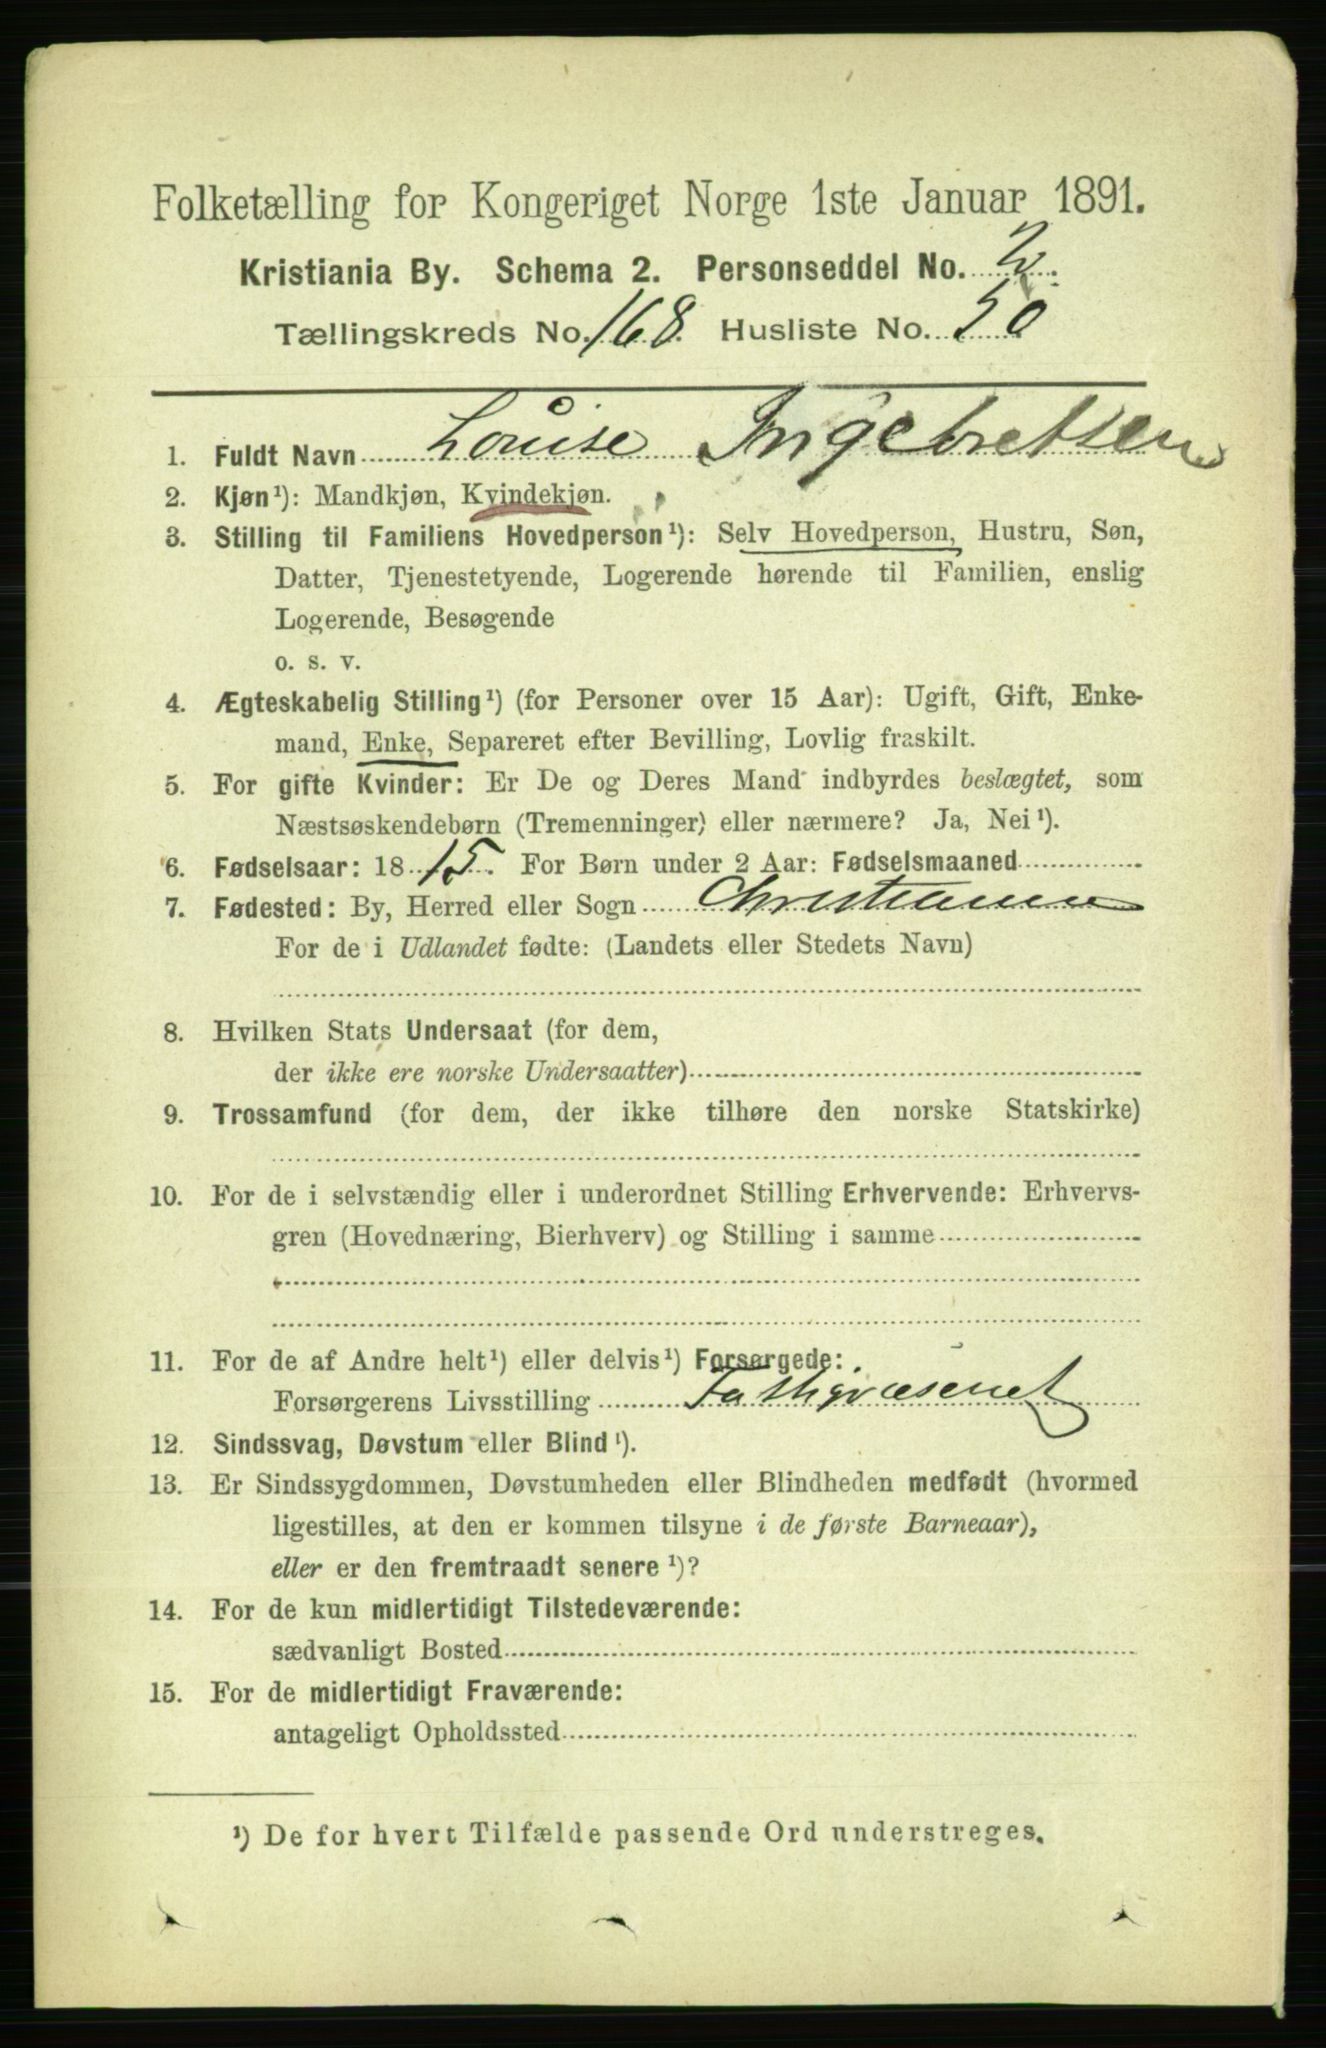 Folketælling for Kongeriget Norge 1ste Januar 1891.
Kristiania By. Schema 2. Personseddel No. 2.
Tællingskreds No. 168. Husliste No. 50
1. Fuldt Navn Louise Ingebretsen
2. Kjøn¹): Mandkjøn, Kvindekjøn.
3. Stilling til Familiens Hovedperson¹): Selv Hovedperson, Hustru, Søn,
Datter, Tjenestetyende, Logerende hørende til Familien, enslig
Logerende, Besøgende
o. s. v.
4. Ægteskabelig Stilling¹) (for Personer over 15 Aar): Ugift, Gift, Enke-
mand, Enke, Separeret efter Bevilling, Lovlig fraskilt.
5. For gifte Kvinder: Er De og Deres Mand indbyrdes beslægtet, som
Næstsøskendebørn (Tremenninger) eller nærmere? Ja, Nei¹).
6. Fødselsaar: 1815. For Børn under 2 Aar: Fødselsmaaned
7. Fødested: By, Herred eller Sogn Christiania
For de i Udlandet fødte: (Landets eller Stedets Navn)
8. Hvilken Stats Undersaat (for dem,
der ikke ere norske Undersaatter)
9. Trossamfund (for dem, der ikke tilhøre den norske Statskirke)
10. For de i selvstændig eller i underordnet Stilling Erhvervende: Erhvervs-
gren (Hovednæring, Bierhverv) og Stilling i samme
11. For de af Andre helt¹) eller delvis¹) Forsørgede:
Forsørgerens Livsstilling Fattigvæsenet
12. Sindssvag, Døvstum eller Blind¹).
13. Er Sindssygdommen, Døvstumheden eller Blindheden medfødt (hvormed
ligestilles, at den er kommen tilsyne i de første Barneaar),
eller er den fremtraadt senere¹)?
14. For de kun midlertidigt Tilstedeværende:
sædvanligt Bosted
15. For de midlertidigt Fraværende:
antageligt Opholdssted
¹) De for hvert Tilfælde passende Ord understreges.